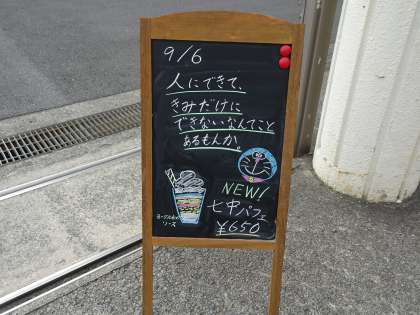 9/6
人にできて、
きみだけに
できないなんてこと
あるもんか。
NEW!
七中パフェ
¥650
ヨーグルト
ソース